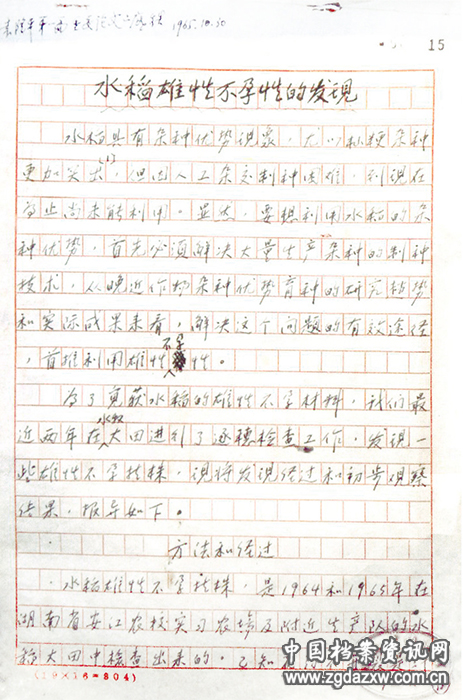 1965.10.30
15
水稻雄性不孕性的发现
水稻具有杂种优势现象，尤以籼粳杂种
更加突出(1)，但因人工杂交制种困难，到现在
为止尚未能利用。显然，要想利用水稻的杂
种优势，首先必须解决大量生产杂种的制种
技术，从晚近作物杂种优势育种的研究趋势
和实际成果来看，解决这个问题的有效途径
，首推利用雄性不孕性。
为了获水稻的雄性不孕材料，我们最
近两年在水稻大田进行了逐穗检查工作，发现一
些雄性不孕植株，现将发现经过和初步观察
结果，报导如下。
方法和经过
水稻雄性不孕植株，是1964和1965年在
湖南省安江农校实习农场及附近生产队的水
稻大田中检查出来的。已知
(19×16=304)
中国档案资讯网
www.zgdazxw.com.cn